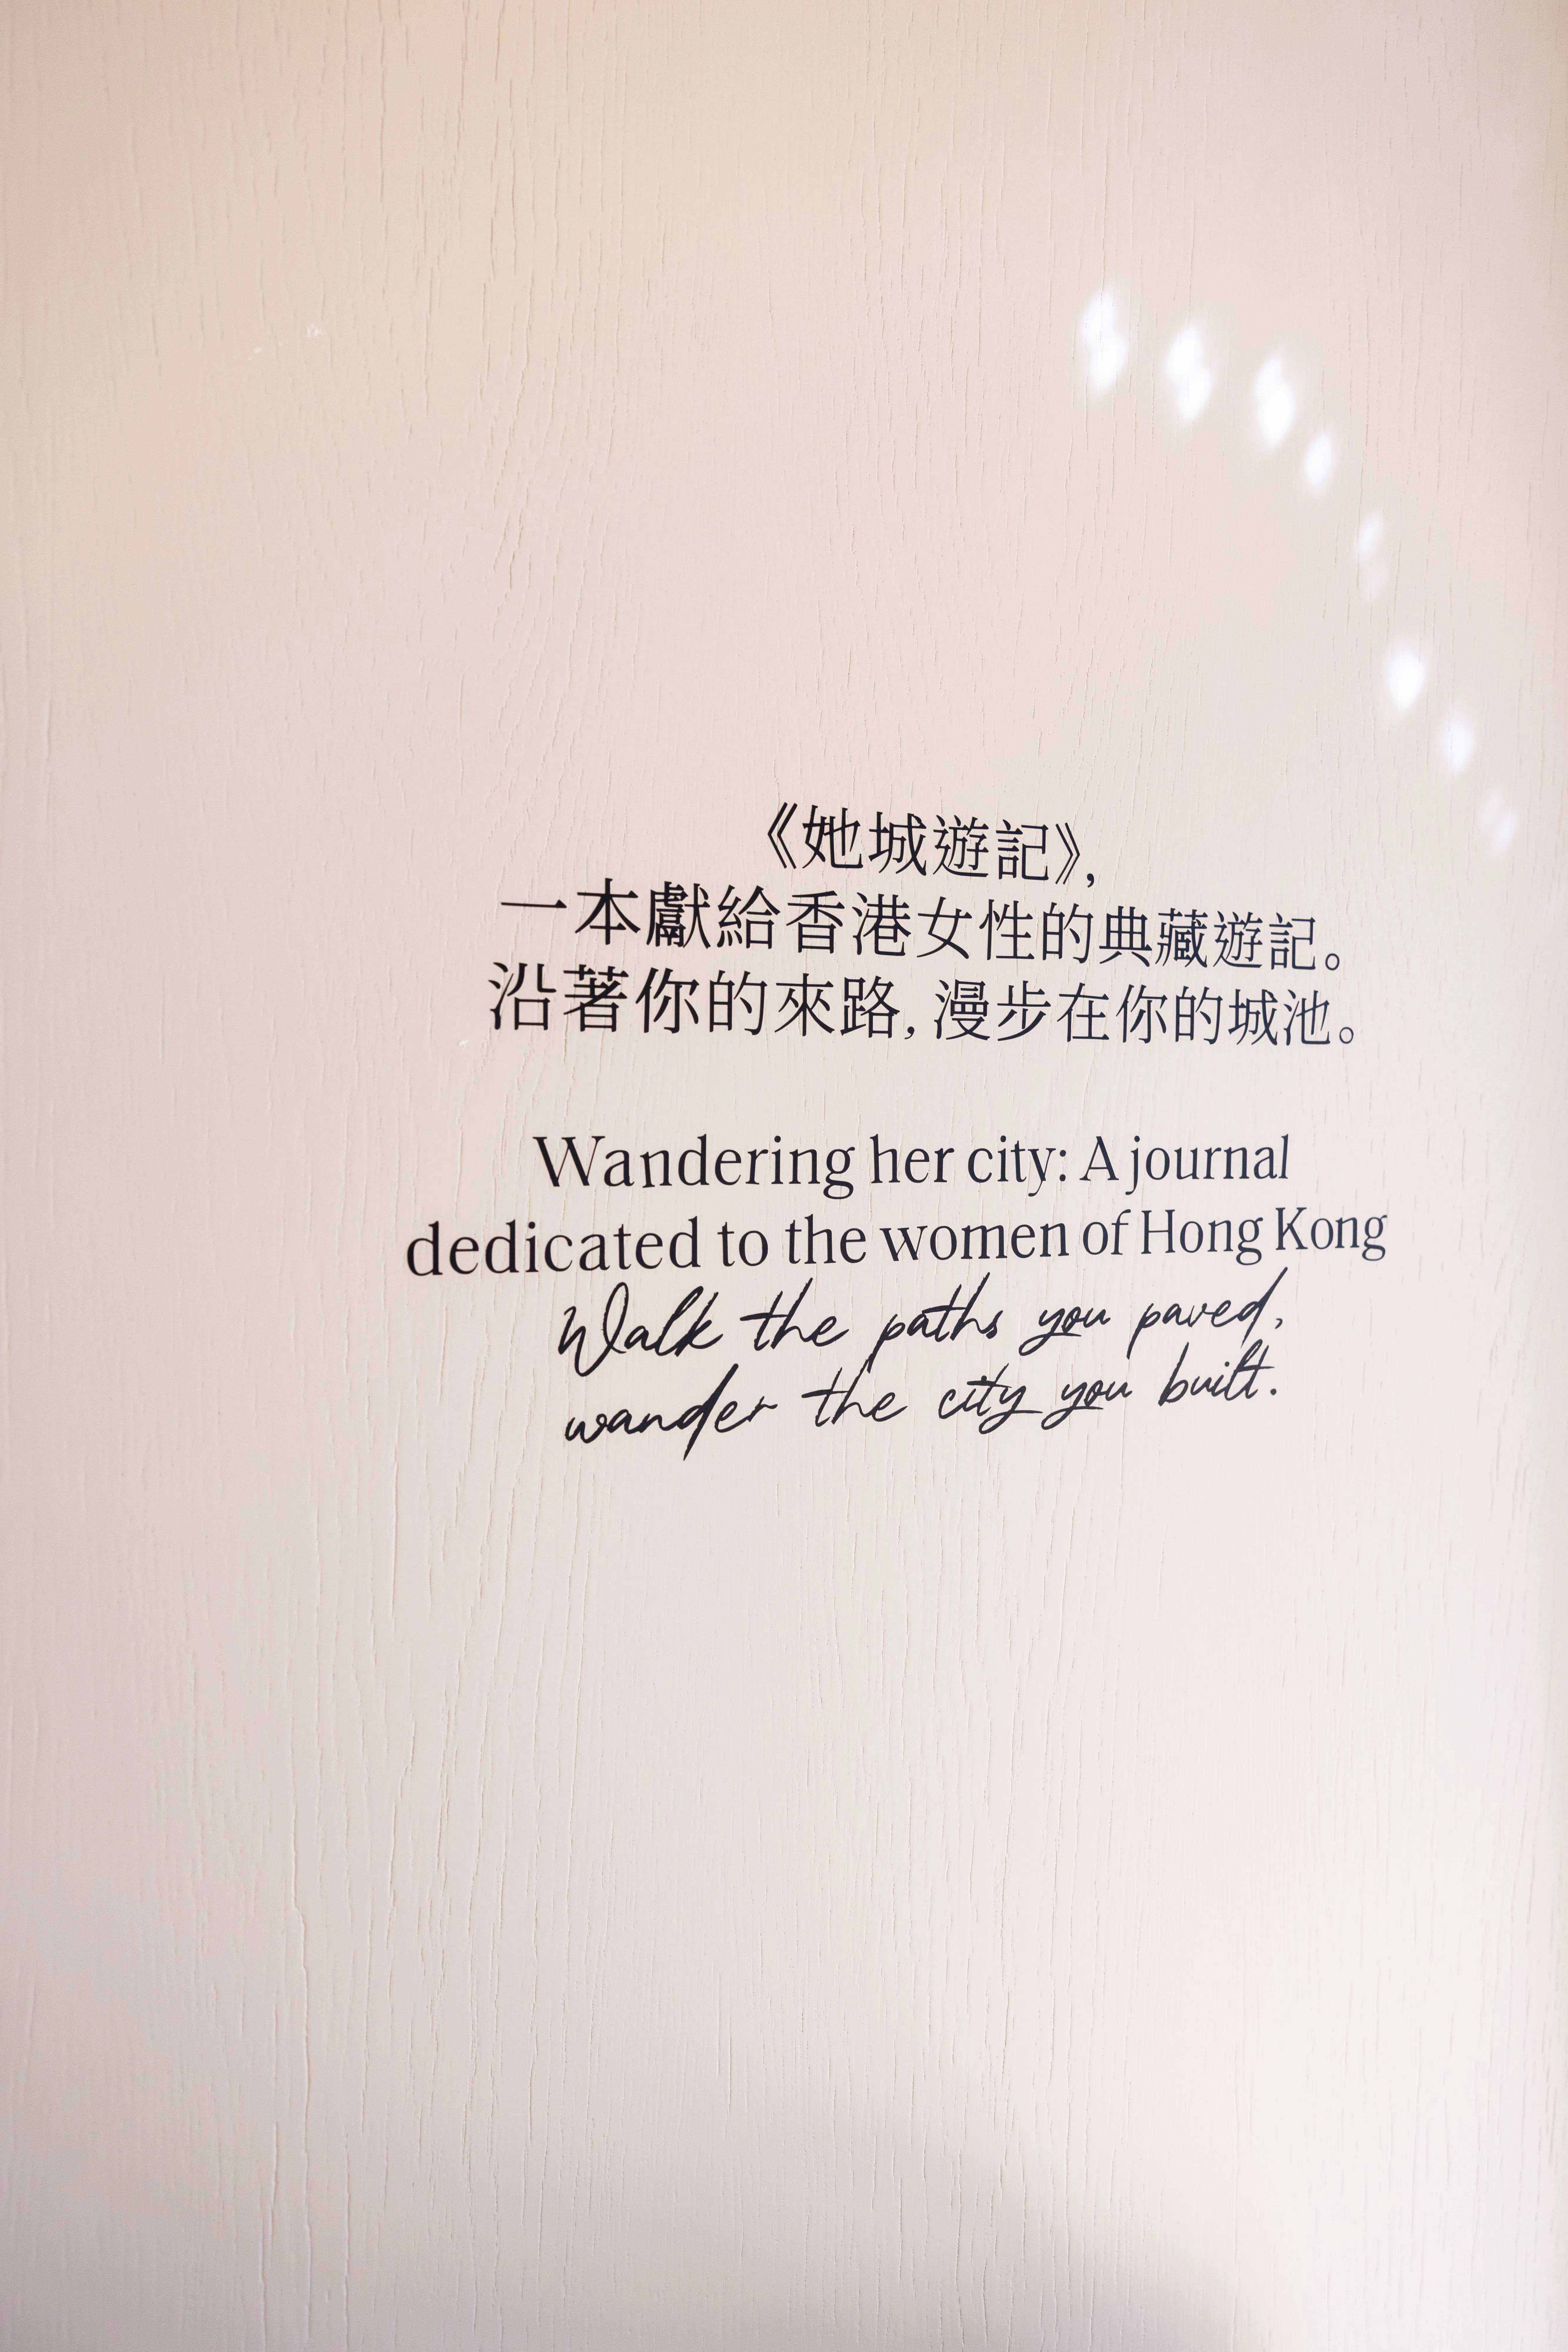 《她城遊記》,
一本獻給香港女性的典藏遊記。
沿著你的來路,漫步在你的城池。
Wandering her city: A journal
dedicated to the women of Hong Kong
Walk the paths you paved,
wander the city you built.